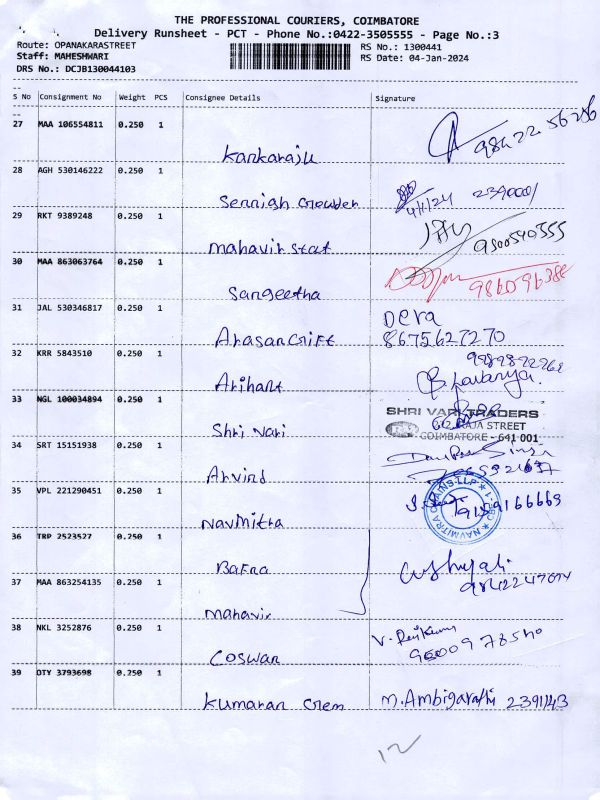 THE PROFESSIONAL COURIERS, COIMBATORE
Delivery Runsheet - PCT - Phone No.:0422-3505555 - Page No.:3
Route: OPANAKARASTREET RS No.: 1300441
Staff: MAHESHWARI RS Date: 04-Jan-2024
DRS No.: DCJB130044103
S No Consignment No Weight PCS Consignee Details Signature
27 MAA 106554811 0.250 1
Kankaraju
28 AGH 530146222 0.250 1
4/1/24 2390001
29 RKT 9389248 0.250 1
9500540555
mahavir stat
30 MAA 863063764 0.250 1
Sangeetha
31 JAL 530346817 0.250 1 Deva
Arasan Gift 8675627270
32 KRR 5843510 0.250 1
Arihant
33 NGL 100034894 0.250 1 SHRI VARI TRADERS
RAJA STREET
Shri Vari COIMBATORE - 641 001
34 SRT 15151938 0.250 1
Arvind
35 VPL 221290451 0.250 1
NAVMITRA CHAINS LLP
9159166669
Navmitra
36 TRP 2523527 0.250 1
Bafna
37 MAA 863254135 0.250 1
mahavir
38 NKL 3252876 0.250 1
Coswan
39 OTY 3793698 0.250 1
Kumaran Gem
12